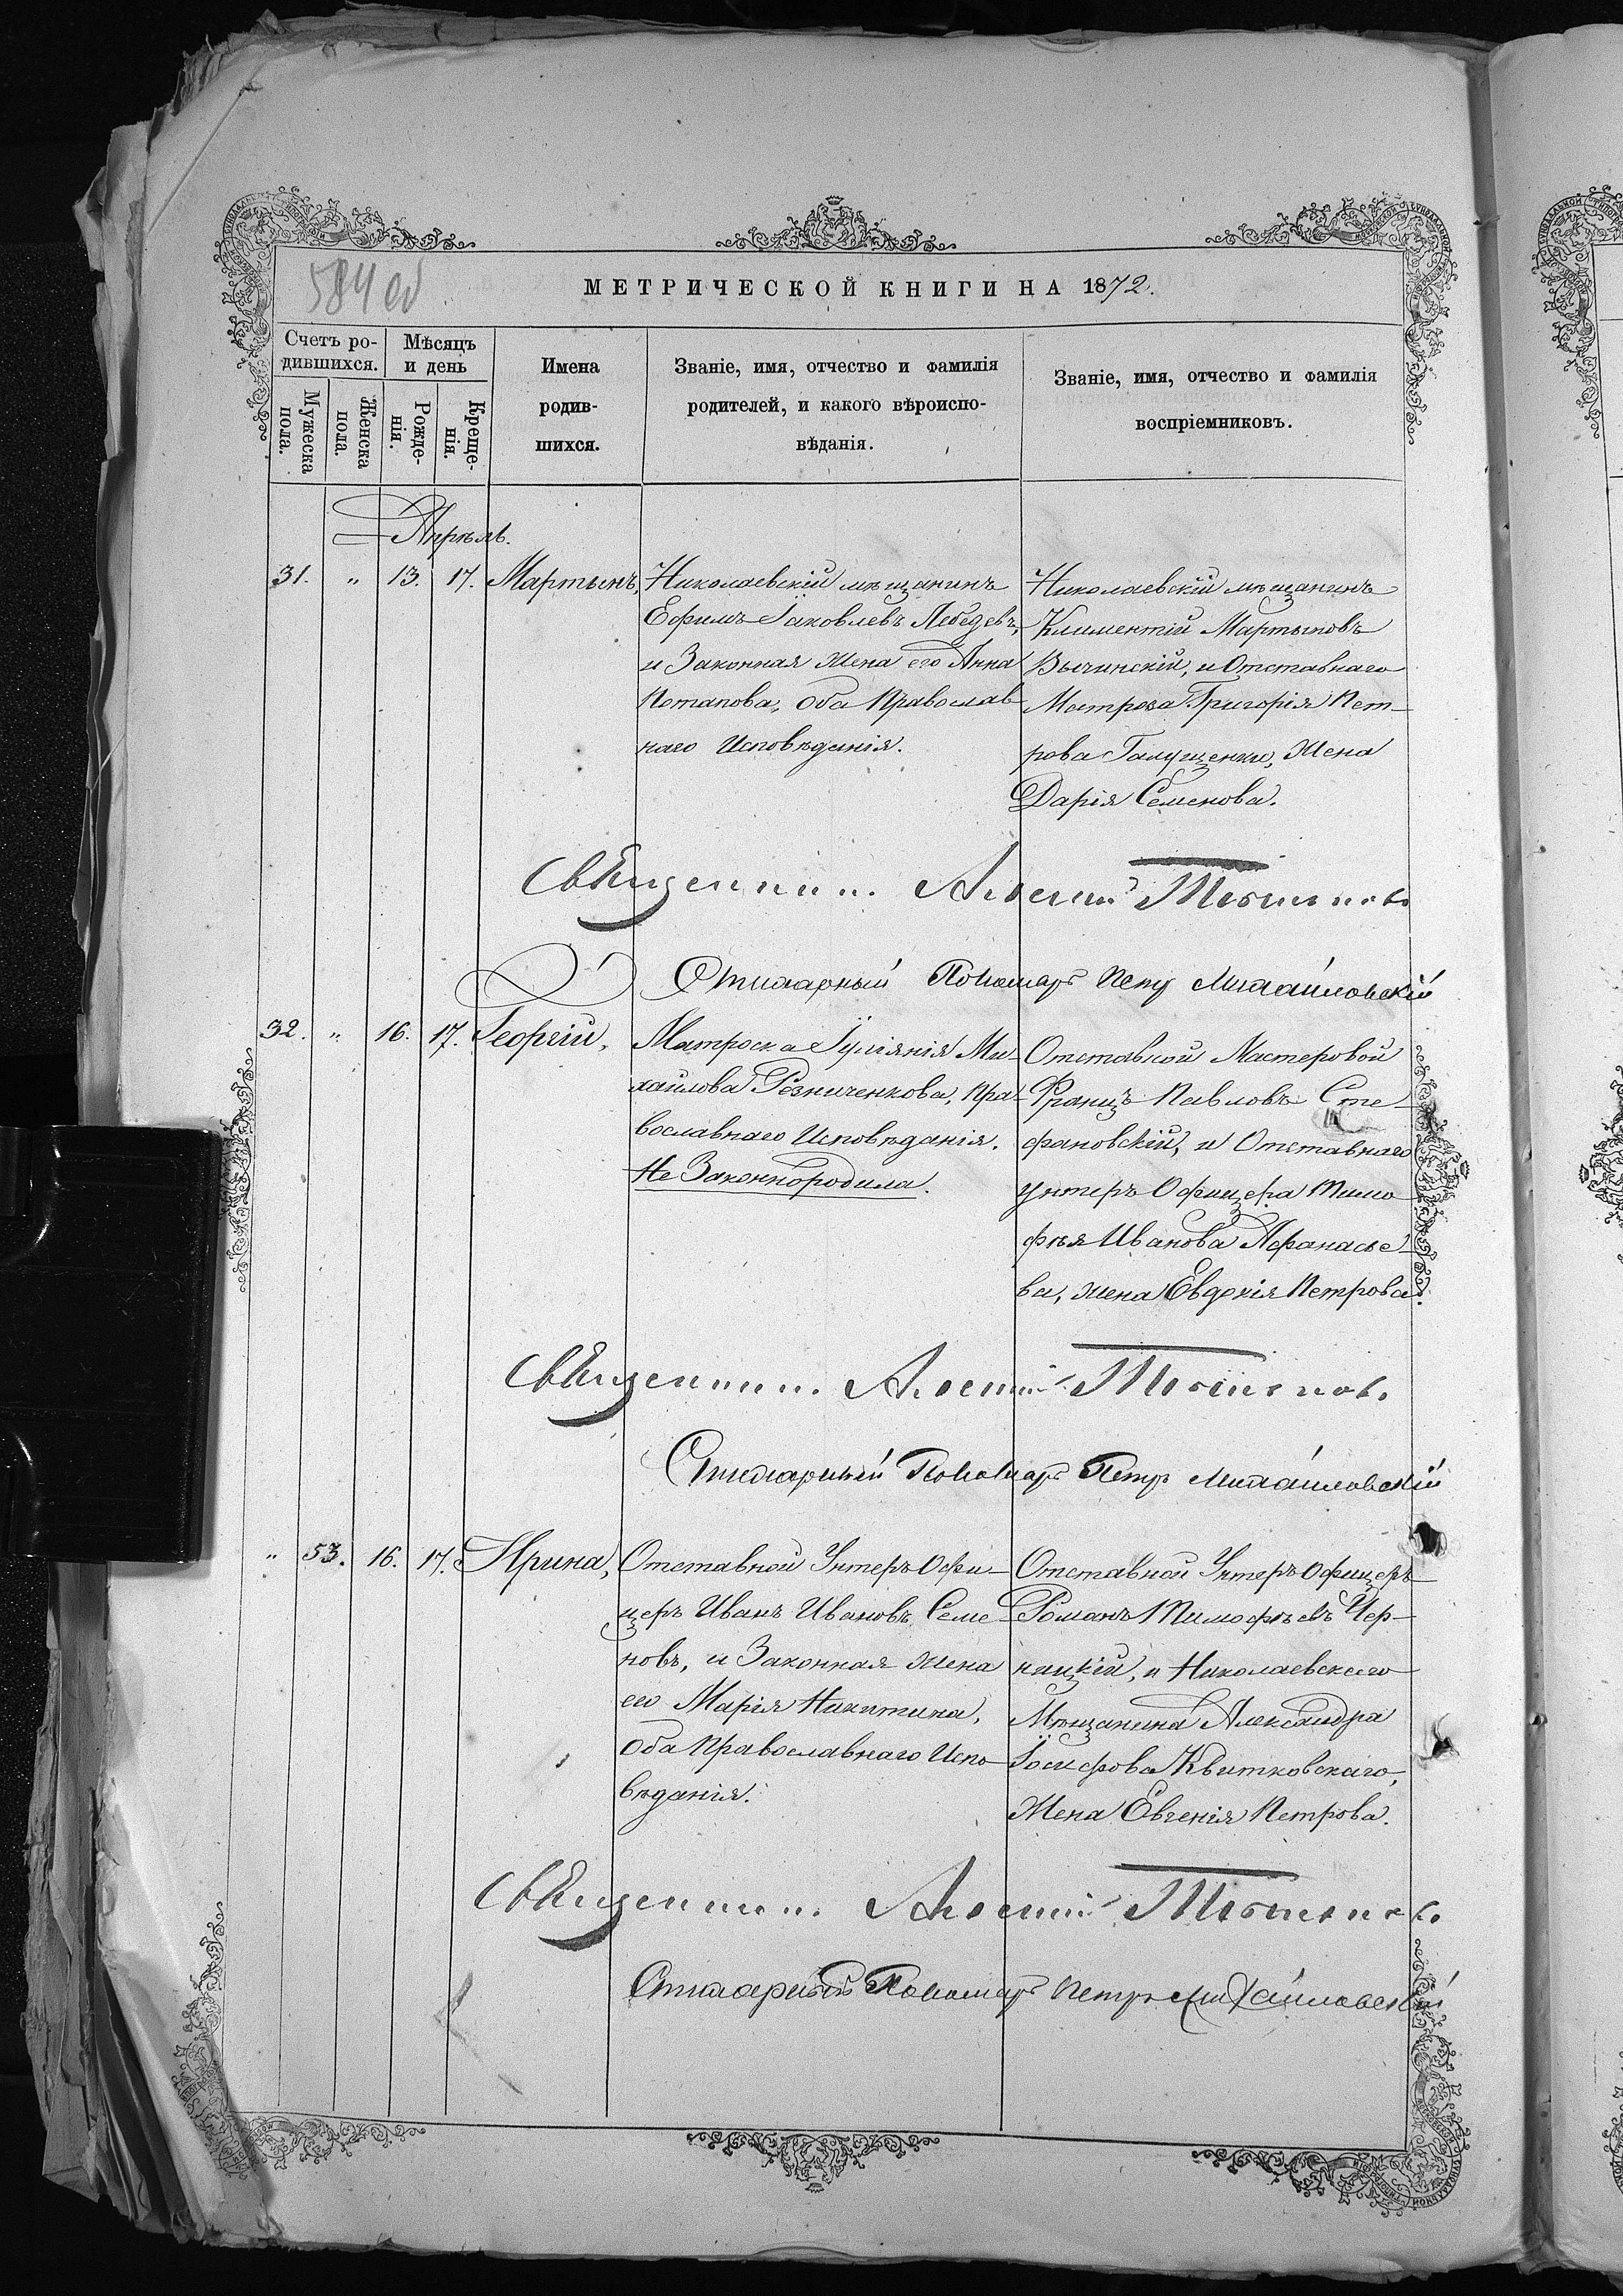 584 об
МЕТРИЧЕСКОЙ КНИГИ НА 1872.
Счетъ ро-
дившихся.
Мужеска
пола.
Женска
пола.
Мѣсяцъ
и день
Рожде-
нія.
Креще-
нія.
Имена
родив-
шихся.
Званіе, имя, отчество и фамилія
родителей, и какого вѣроиспо-
вѣданія.
Званіе, имя, отчество и фамилія
воспріемниковъ.
Апрѣль.
31. " 13. 17. Мартынъ,
Николаевскій мѣщанинъ
Ефимъ Іаковлевъ Лебедевъ,
и Законная жена его Анна
Потапова, оба Православ-
наго Исповѣданія.
Николаевскій мѣщанинъ
Климентій Мартыновъ
Вычинскій, и Отставнаго
Матроза Григорія Пет-
рова Галущенки, жена
Дарія Семенова.
Священник Алексій
Стихарный Пономарь Петр Михайловскій
32. " 16. 17. Георгій,
Матроска Іуліянія Ми-
хайлова Резниченкова, Пра-
вославнаго Исповѣданія.
Не Законнородила.
Отставной Мастеровой
Францъ Павловъ Сте-
фановскій, и Отставнаго
унтеръ Офицера Тимо-
фѣя Иванова Афанасье-
ва, жена Евдокія Петрова.
Священник Алексій
Стихарный Пономарь Петръ Михайловскій
" 53. 16. 17. Ирина,
Отставной Унтеръ Офи-
церъ Иванъ Ивановъ Семе-
новъ, и Законная жена
его Марія Никитина,
Оба Православнаго Испо-
вѣданія.
Отставной Унтеръ Офицеръ
Романъ Тимофѣевъ Чер-
нацкій, и Николаевскаго
Мѣщанина Александра
Іосифова Квитковскаго,
Жена Евгенія Петрова.
Священник Алексій
Стихарный Пономарь Петръ Михайловскій